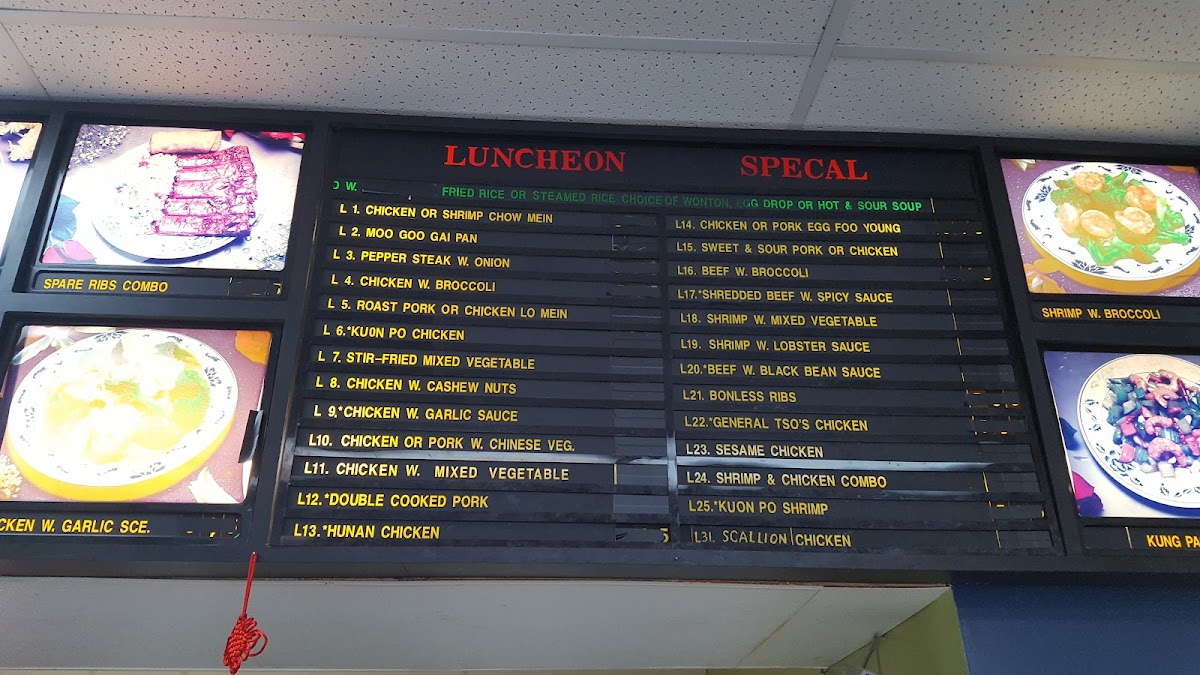 LUNCHEON SPECAL
W. FRIED RICE OR STEAMED RICE CHOICE OF WONTON, EGG DROP OR HOT & SOUR SOUP
L 1. CHICKEN OR SHRIMP CHOW MEIN
L 2. MOO GOO GAI PAN
L 3. PEPPER STEAK W. ONION
L 4. CHICKEN W. BROCCOLI
L 5. ROAST PORK OR CHICKEN LO MEIN
L 6.*KU0N PO CHICKEN
L 7. STIR-FRIED MIXED VEGETABLE
L 8. CHICKEN W. CASHEW NUTS
L 9.*CHICKEN W. GARLIC SAUCE
L10. CHICKEN OR PORK W. CHINESE VEG.
L11. CHICKEN W. MIXED VEGETABLE
L12.*DOUBLE COOKED PORK
L13.*HUNAN CHICKEN
L14. CHICKEN OR PORK EGG FOO YOUNG
L15. SWEET & SOUR PORK OR CHICKEN
L16. BEEF W. BROCCOLI
L17.*SHREDDED BEEF W. SPICY SAUCE
L18. SHRIMP W. MIXED VEGETABLE
L19. SHRIMP W. LOBSTER SAUCE
L20.*BEEF W. BLACK BEAN SAUCE
L21. BONLESS RIBS
L22.*GENERAL TSO'S CHICKEN
L23. SESAME CHICKEN
L24. SHRIMP & CHICKEN COMBO
L25.*KUON PO SHRIMP
L31. SCALLION CHICKEN
SPARE RIBS COMBO
CKEN W. GARLIC SCE.
SHRIMP W. BROCCOLI
KUNG PA